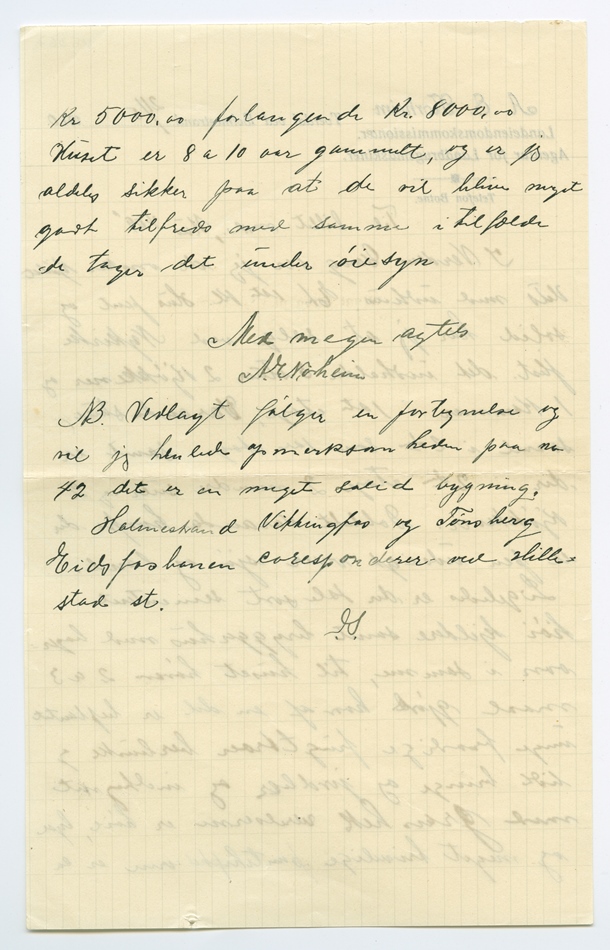 Kr 5000,00 forlangende Kr. 8000,00
Huset er 8 a 10 aar gammelt, og er jg
aldeles sikker paa at de vil blive meget
godt tilfreds med samme i tilfælde
de tager det under øiesyn
Med megen agtels
A. E. Noheim
NB. Vedlagt følger en fortegnelse og
vil jg henlede opmerksomheden paa no
42 det er en meget solid bygning.
Holmestrand Vikkingfos og Tønsberg
Eidsfosbanen coresponderer ved Hille=
stad st.
DS.